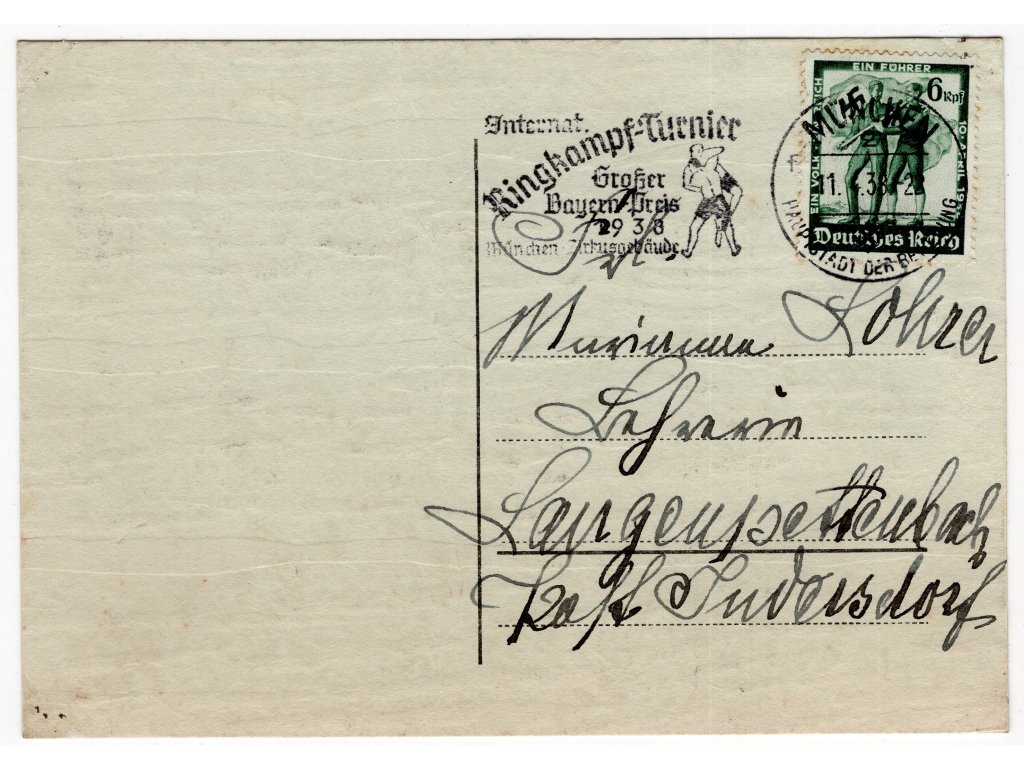 Internat.
Ringkampf-Turnier
Großer
Bayern-Preis
1938
München Zirkusgebäude
EIN VOLK EIN REICH EIN FÜHRER 10. APRIL
6 Rpf
Deutsches Reich
MÜNCHEN
11. 38
HAUPTSTADT DER BEWEGUNG
Frl.
Marianne Lohrer
Lehrerin
Langenpettenbach
Post Indersdorf